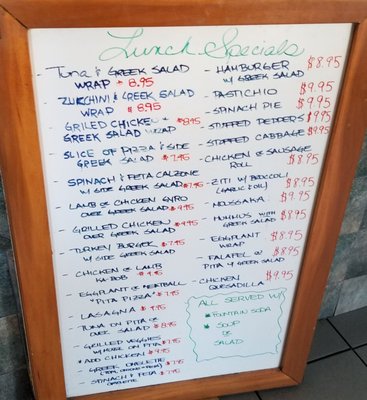 Lunch Specials
- Tuna & GREEK SALAD
WRAP * 8.95
- ZUKCHINI & GREEK SALAD
WRAP * 8.95
- GRILLED CHICKEN &
GREEK SALAD WRAP $8.95
- SLICE OF PIZZA & SIDE
GREEK SALAD $7.95
- SPINACH & FETA CALZONE
W/ SIDE GREEK SALAD $7.95
- LAMB OR CHICKEN GYRO
OVER GREEK SALAD $9.95
- GRILLED CHICKEN
OVER GREEK SALAD $9.95
- TURKEY BURGER $7.95
W/ SIDE GREEK SALAD
- CHICKEN OR LAMB
KA-BOB $9.95
- EGGPLANT OR MEATBALL
"PITA PIZZA" $7.95
- LASAGNA $9.95
- TUNA ON PITA OR
OVER SALAD $8.95
- GRILLED VEGGIES
W/ ON PITA $7.95
* ADD CHICKEN $9.95
- GREEK OMELETTE $7.95
- SPINACH & FETA $7.95
OMELETTE
- HAMBURGER $8.95
W/ GREEK SALAD
- PASTICHIO $9.95
- SPINACH PIE $9.95
- STUFFED PEPPERS $9.95
- STUFFED CABBAGE $9.95
- CHICKEN OR SAUSAGE
ROLL $8.95
- ZITI W/ BROCCOLI
(GARLIC & OIL) $8.95
- MOUSSAKA $9.95
- HUMMUS WITH
GREEK SALAD $8.95
- EGGPLANT
WRAP $8.95
- FALAFEL OR
PITA W/ GREEK SALAD $8.95
- CHICKEN
QUESADILLA $9.95
ALL SERVED W/
* FOUNTAIN SODA
* SOUP
OR
SALAD